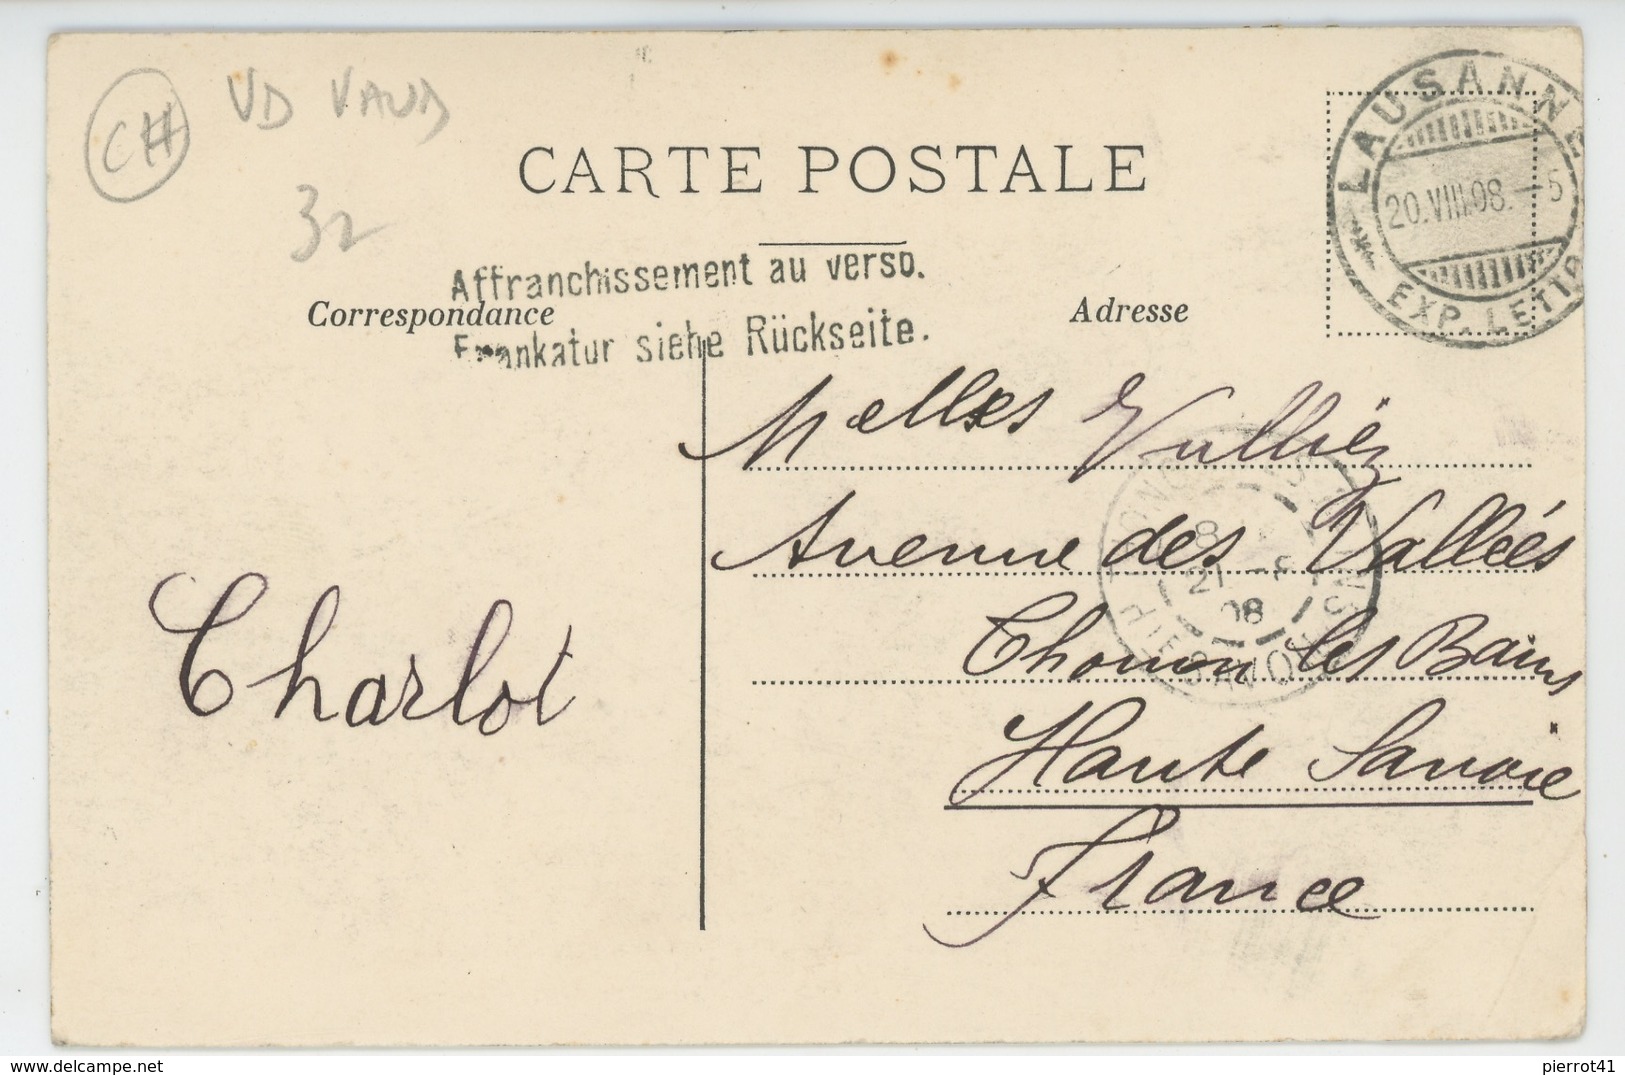 CH
VD VAUD
32
CARTE POSTALE
LAUSANNE
20.VIII.08.—5
EXP. LETTR
Affranchissement au verso.
Frankatur siehe Rückseite.
Correspondance
Adresse
Melles Vulliez
Avenue des Vallées
Thonon les Bains
Haute Savoie
France
THONON-LES-BAINS
8
21 -8
08
HTE SAVOIE
Charlot
pierrot41